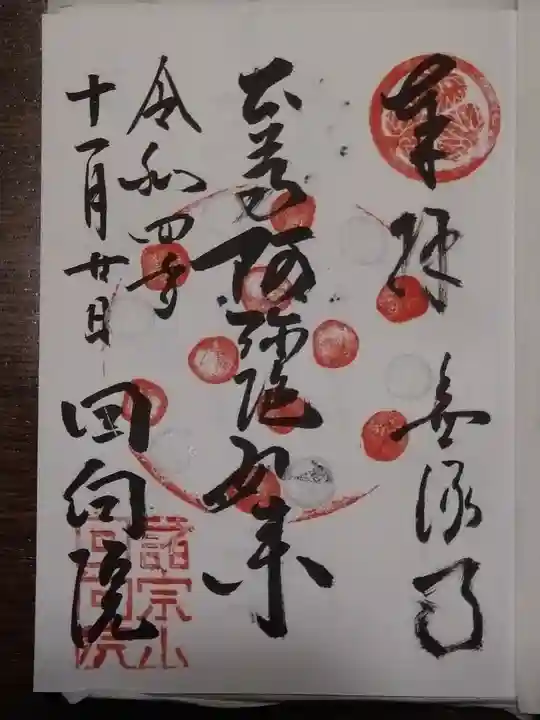 奉拝 無縁寺
本尊阿弥陀如来
令和四年
十一月廿日
回向院
諸宗山
回向院